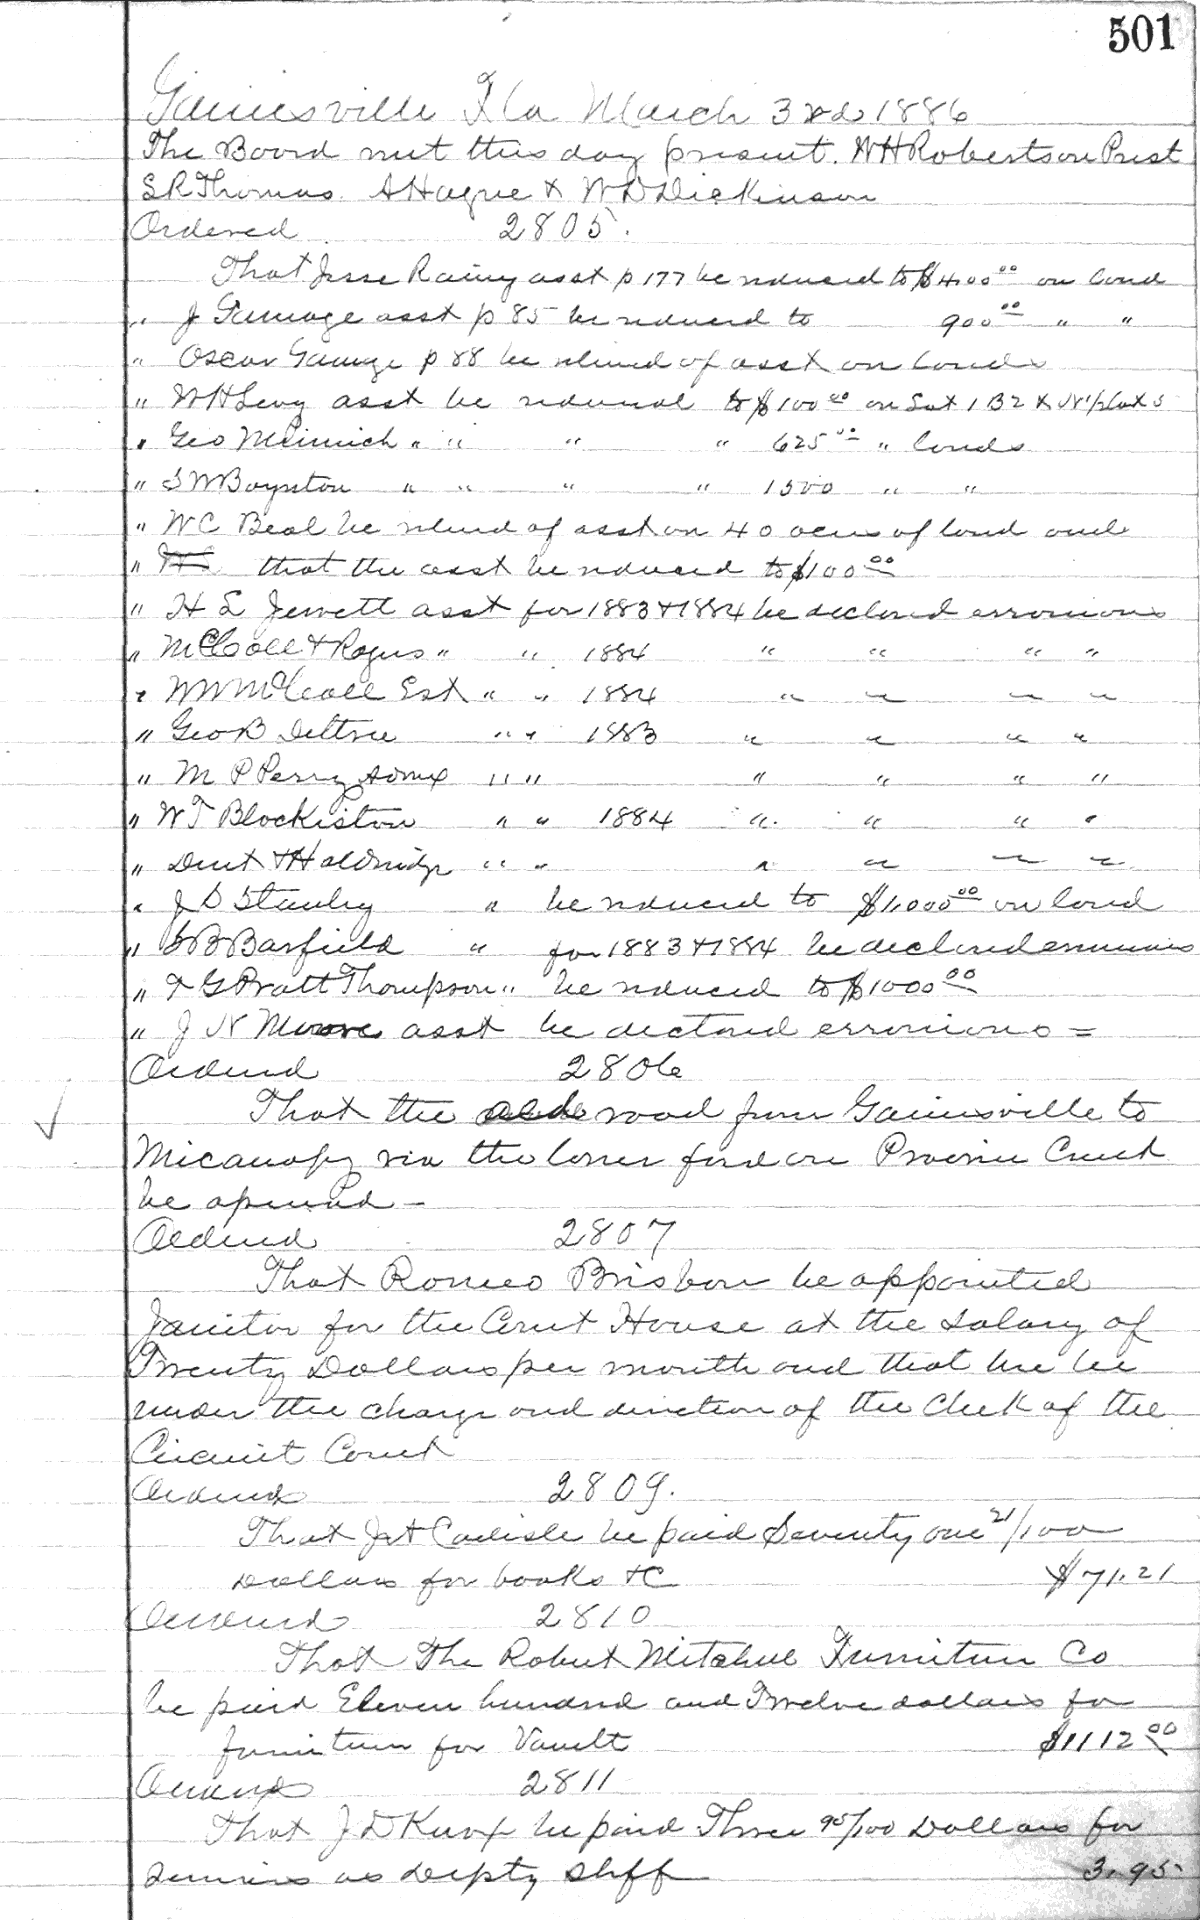 501
Gainesville Fla March 3rd 1886
The Board met this day present. WH Robertson Prest
S R Thomas. A Hague & W D Dickinson
Ordered 2805.
That Jesse Rainy asst p 177 be reduced to $400 00 on land
" J Gamage asst p 85 be reduced to 900 00 " "
" Oscar p 88 be relieved of asst on lands
" WH Levy asst be reduced to $100 00 on Lot 1 B2 &
" Geo " " " " 625 00 " lands
" S W Boynton " " " " 1500 " "
" W C Beal be relieved of asst on 40 acres of land and
" that the asst be reduced to $100 00
" H L Jewett asst for 1883 & 1884 be declared erronious
" McCall & Rogers " " 1884 " " " "
" WW McCall Est " " 1884 " " " "
" Geo B " " 1883 " " " "
" M P Perry Admx " " " " " "
" W T Blockiston " " 1884 " " " "
" Dent & Holdridge " " " " " "
" J D Stanley " be reduced to $1,000 00 on land
" Barfield " for 1883 & 1884 be declared erronious
" G Pratt Thompson " be reduced to $1000 00
" J N Moore asst be declared erronious =
Ordered 2806
That the olde road from Gainesville to
Micanopy via the lower ford on Prairie Creek
be opened -
Ordered 2807
That Romeo Brisbon be appointed
Janitor for the Court House at the salary of
Twenty Dollars per month and that he be
under the charge and direction of the Clerk of the
Circuit Court
Ordered 2809.
That Carlisle be paid Seventy one 21/100
Dollars for books &C $71.21
Ordered 2810
That The Robert Mitchell Furniture Co
be paid Eleven hundred and Twelve dollars for
furniture for Vault $1112 00
Ordered 2811
That J D Knox be paid Three 95/100 Dollars for
services as depty Shff 3.95